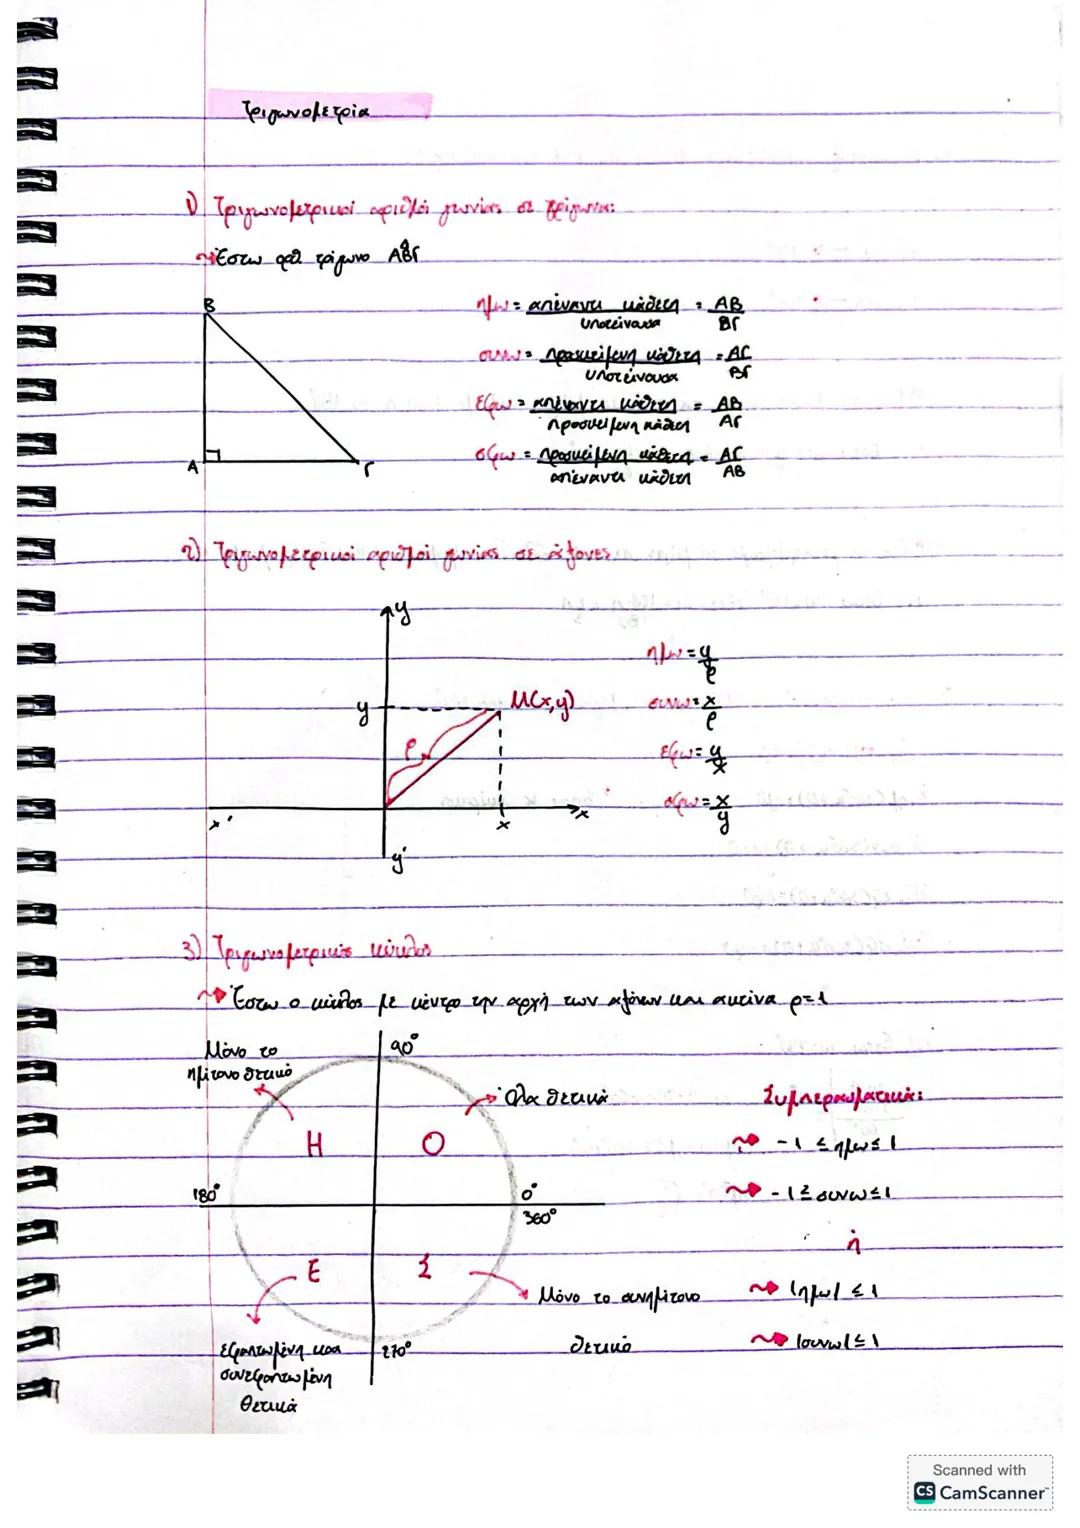 Τριγωνομετρία
1) Τριγωνομετρικοί αριθμοί γωνίας σε τρίγωνα:
Έστω ορθ. τρίγωνο ΑΒΓ
Β
Α
Γ
ημω = απέναντι κάθετη / υποτείνουσα = ΑΒ / ΒΓ
συνω = προσκείμενη κάθετη / υποτείνουσα = ΑΓ / ΒΓ
εφω = απέναντι κάθετη / προσκείμενη κάθετη = ΑΒ / ΑΓ
σφω = προσκείμενη κάθετη / απέναντι κάθετη = ΑΓ / ΑΒ
2) Τριγωνομετρικοί αριθμοί γωνίας σε άξονες
y
y
M(x,y)
ρ
x'
x
x
y'
ημω = y/ρ
συνω = x/ρ
εφω = y/x
σφω = x/y
3) Τριγωνομετρικός κύκλος
Έστω ο κύκλος με κέντρο την αρχή των αξόνων και ακτίνα ρ=1
Μόνο το
ημίτονο θετικό
90°
Όλα θετικά
Η
Ο
180°
0°
360°
Ε
Σ
Μόνο το συνημίτονο
θετικό
270°
εφαπτωμένη και
συνεφαπτωμένη
θετικά
Συμπερασματικά:
-1 ≤ ημω ≤ 1
-1 ≥ συνω ≤ 1
ή
|ημω| ≤ 1
|συνω| ≤ 1
Scanned with
CS CamScanner